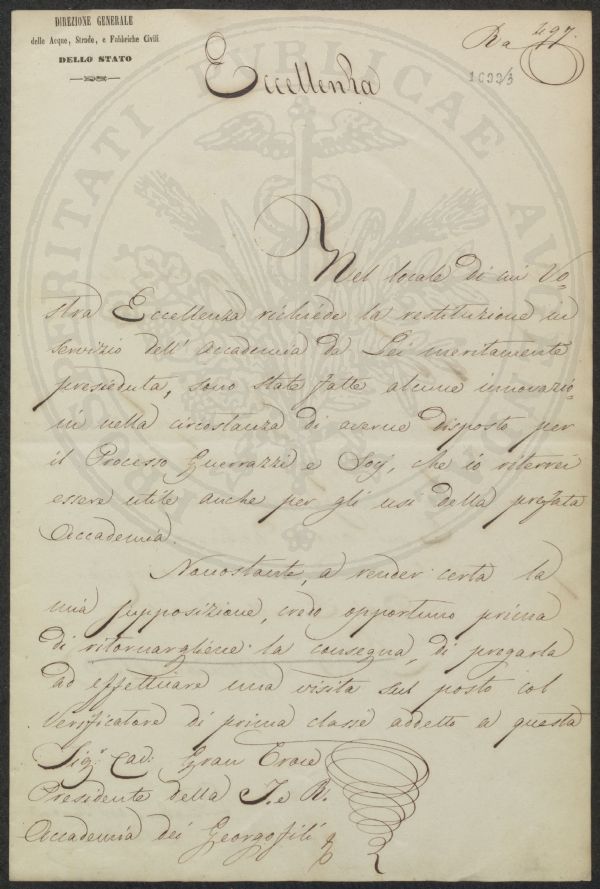 DIREZIONE GENERALE
delle Acque, Strade, e Fabbriche Civili
DELLO STATO
Ra 497.
1693/3
Eccellenza
Nel locale di cui Vo=
stra Eccellenza richiede la restituzione in
servizio dell' Accademia da Lei meritamente
presieduta, sono state fatte alcune innovazio=
ni nella circostanza di averne disposto per
il Processo Guerrazzi e Socj, che io riterrei
essere utile anche per gli usi della prefata
Accademia.
Nonostante, a render certa la
mia supposizione, credo opportuno prima
di ritornargliene la consegna, di pregarla
ad effettuare una visita sul posto col
Verificatore di prima classe addetto a questa
Sig.r Cav: Gran Croce
Presidente della I. e R.
Accademia dei Georgofili
PROSPERITATI PUBLICAE AUGENDAE